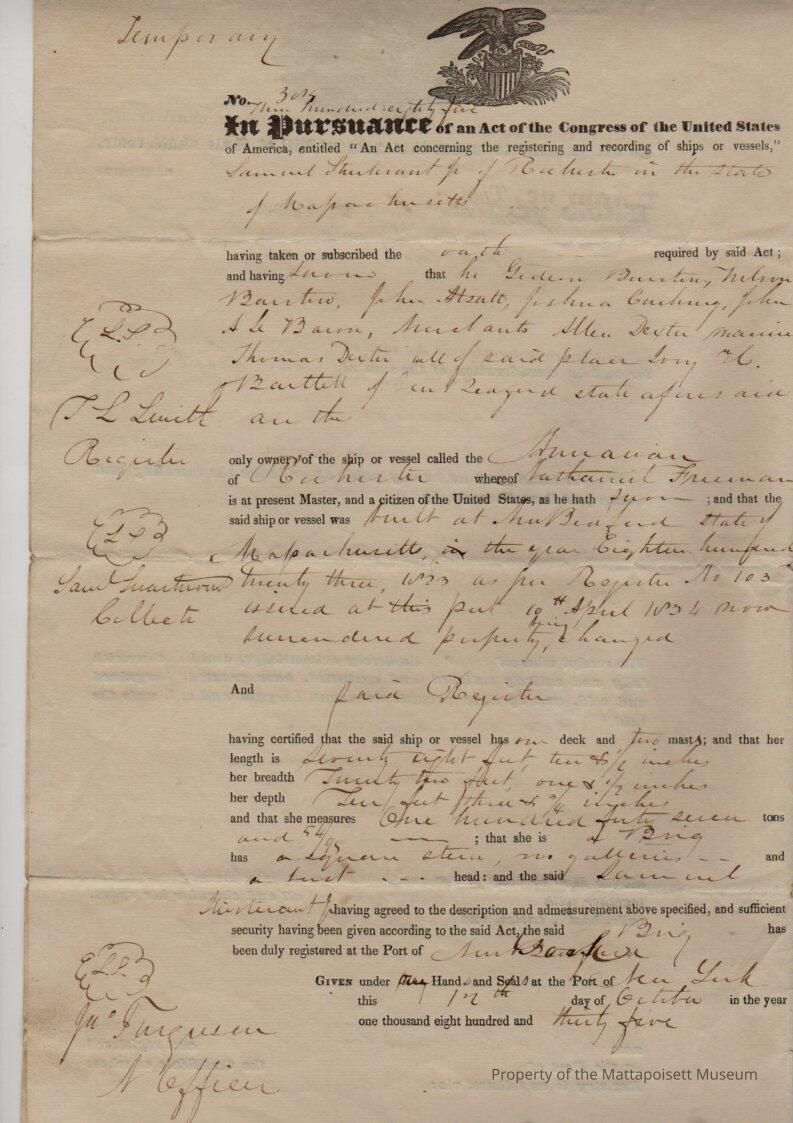 Temporary
No. 385
Three hundred eighty five
In Pursuance of an Act of the Congress of the United States
of America, entitled "An Act concerning the registering and recording of ships or vessels,"
Samuel Sturtevant Jr of Rochester in the state
of Massachusetts
having taken or subscribed the oath required by said Act;
and having sworn that he Gideon Barstow, Wilson
Barstow, John Atsatt, Joshua Cushing, John
A Le Baron, Merchants Allen Dexter marine
Thomas Dexter all of said place Ivory H.
Bartlett of New Bedford state aforesaid
are the
(LS)
T L Smith
Register
only owner of the ship or vessel called the Annawan
of Rochester whereof Nathaniel Freeman
is at present Master, and a citizen of the United States, as he hath sworn; and that the
said ship or vessel was built at New Bedford state of
Massachusetts, in the year Eighteen hundred
twenty three, 1823 as per Register No 103
issued at this port 19th April 1834 now
surrendered property being changed
(LS)
Saml Swartwout
Collector
And said Register
having certified that the said ship or vessel has one deck and two masts; and that her
length is seventy eight feet, ten & 1/2 inches
her breadth Twenty two feet, one & 1/2 inches
her depth Ten feet three & 3/4 inches
and that she measures One hundred forty seven tons
and 54/95 ; that she is a Brig
has a square stern, no galleries and
a bust head: and the said Samuel
Sturtevant Jr having agreed to the description and admeasurement above specified, and sufficient
security having been given according to the said Act, the said Brig has
been duly registered at the Port of New Bedford
(LS)
Jno Ferguson
N Officer
Given under my Hands and Seals at the Port of New York
this 12th day of October in the year
one thousand eight hundred and thirty five
Property of the Mattapoisett Museum